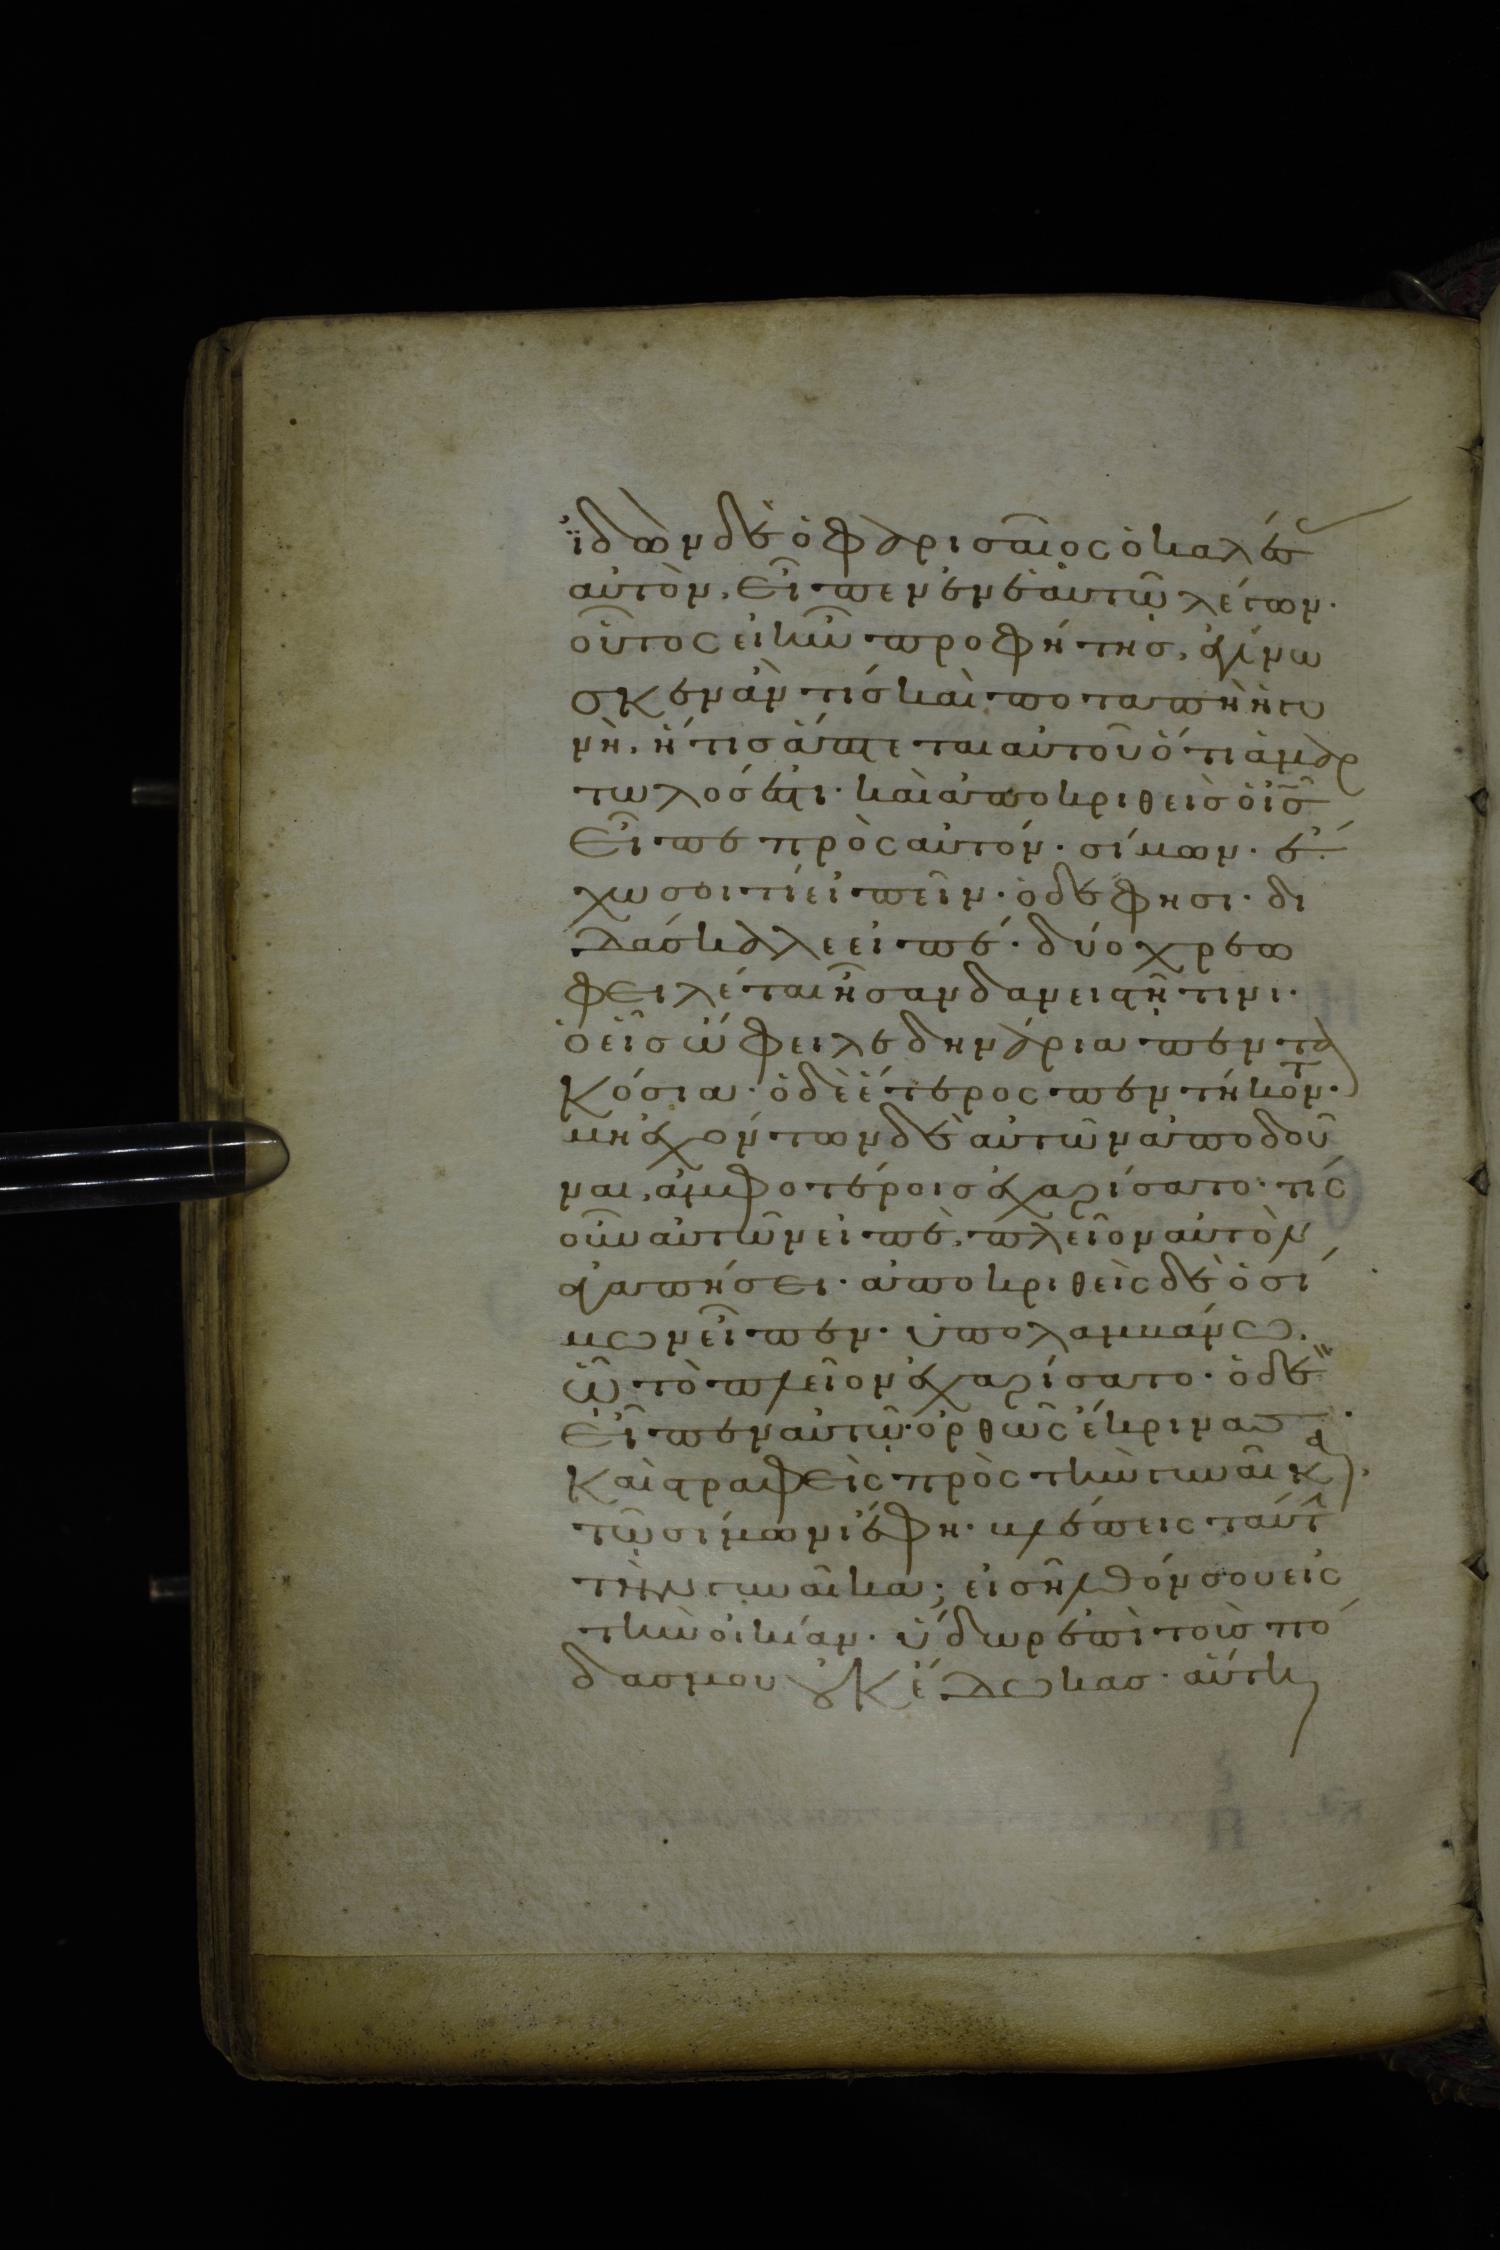 ἰ̈δὼν δὲ ὁ φαρισαῖος ὁ καλέσ
αὐτὸν, εἶπεν ἐν ἑαυτῶ λέγων·
οὗτος εἰ ἦν προφήτης, ἐγίνω
σκεν ἂν τίς καὶ ποταπὴ ἡ γυ
νὴ, ἥτις ἅπτεται αὐτοῦ ὅτι ἁμαρ
τωλός ἐστι· καὶ ἀποκριθεὶς ὁ ἰς̅
εἶπε πρὸς αὐτόν· σίμων· ἔ
χω σοι τί εἰπεῖν· ὁ δέ φησι· δι
δάσκαλε εἰπέ· δύο χρεω
φειλέται ἦσαν δανειστῆ τινι·
ὁ εἷς ὤφειλε δηνάρια πεντα
κόσια· ὁ δὲ ἕτερος πεντήκοντ·
μὴ ἐχόντων δὲ αὐτῶν ἀποδοῦ
ναι, ἀμφοτέροις ἐχαρίσατο· τίς
οὖν αὐτῶν εἰπὲ, πλεῖον αὐτὸν
ἀγαπήσει· ἀποκριθεὶς δὲ ὁ σί
μων εἶπεν· ὑπολαμβάνω·
ὧ τὸ πλεῖον ἐχαρίσατο· ὁ δὲ
εἶπεν αὐτῶ· ὀρθῶς ἔκρινας·
καὶ στραφεὶς πρὸς τὴν γυναῖκα,
τῶ σίμωνι ἔφη· βλέπεις ταύτ
τὴν γυναῖκα; εἰσῆλθόν σου εἰς
τὴν οἰκίαν· ὕδωρ ἐπὶ τοὺς πό
δας μου οὐκ ἔδωκας· αὕτη